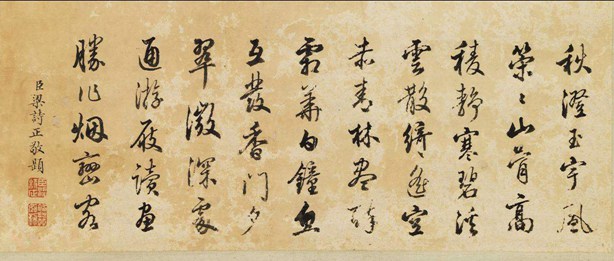 秋澄玉宇風
策〻山骨高
稜靜寒碧淡
雲散綺遙空
赤青林盡醉
霜華白鐘魚
互發香門夕
翠微深處
通游屐讀畫
勝作烟巒客
臣梁詩正敬題